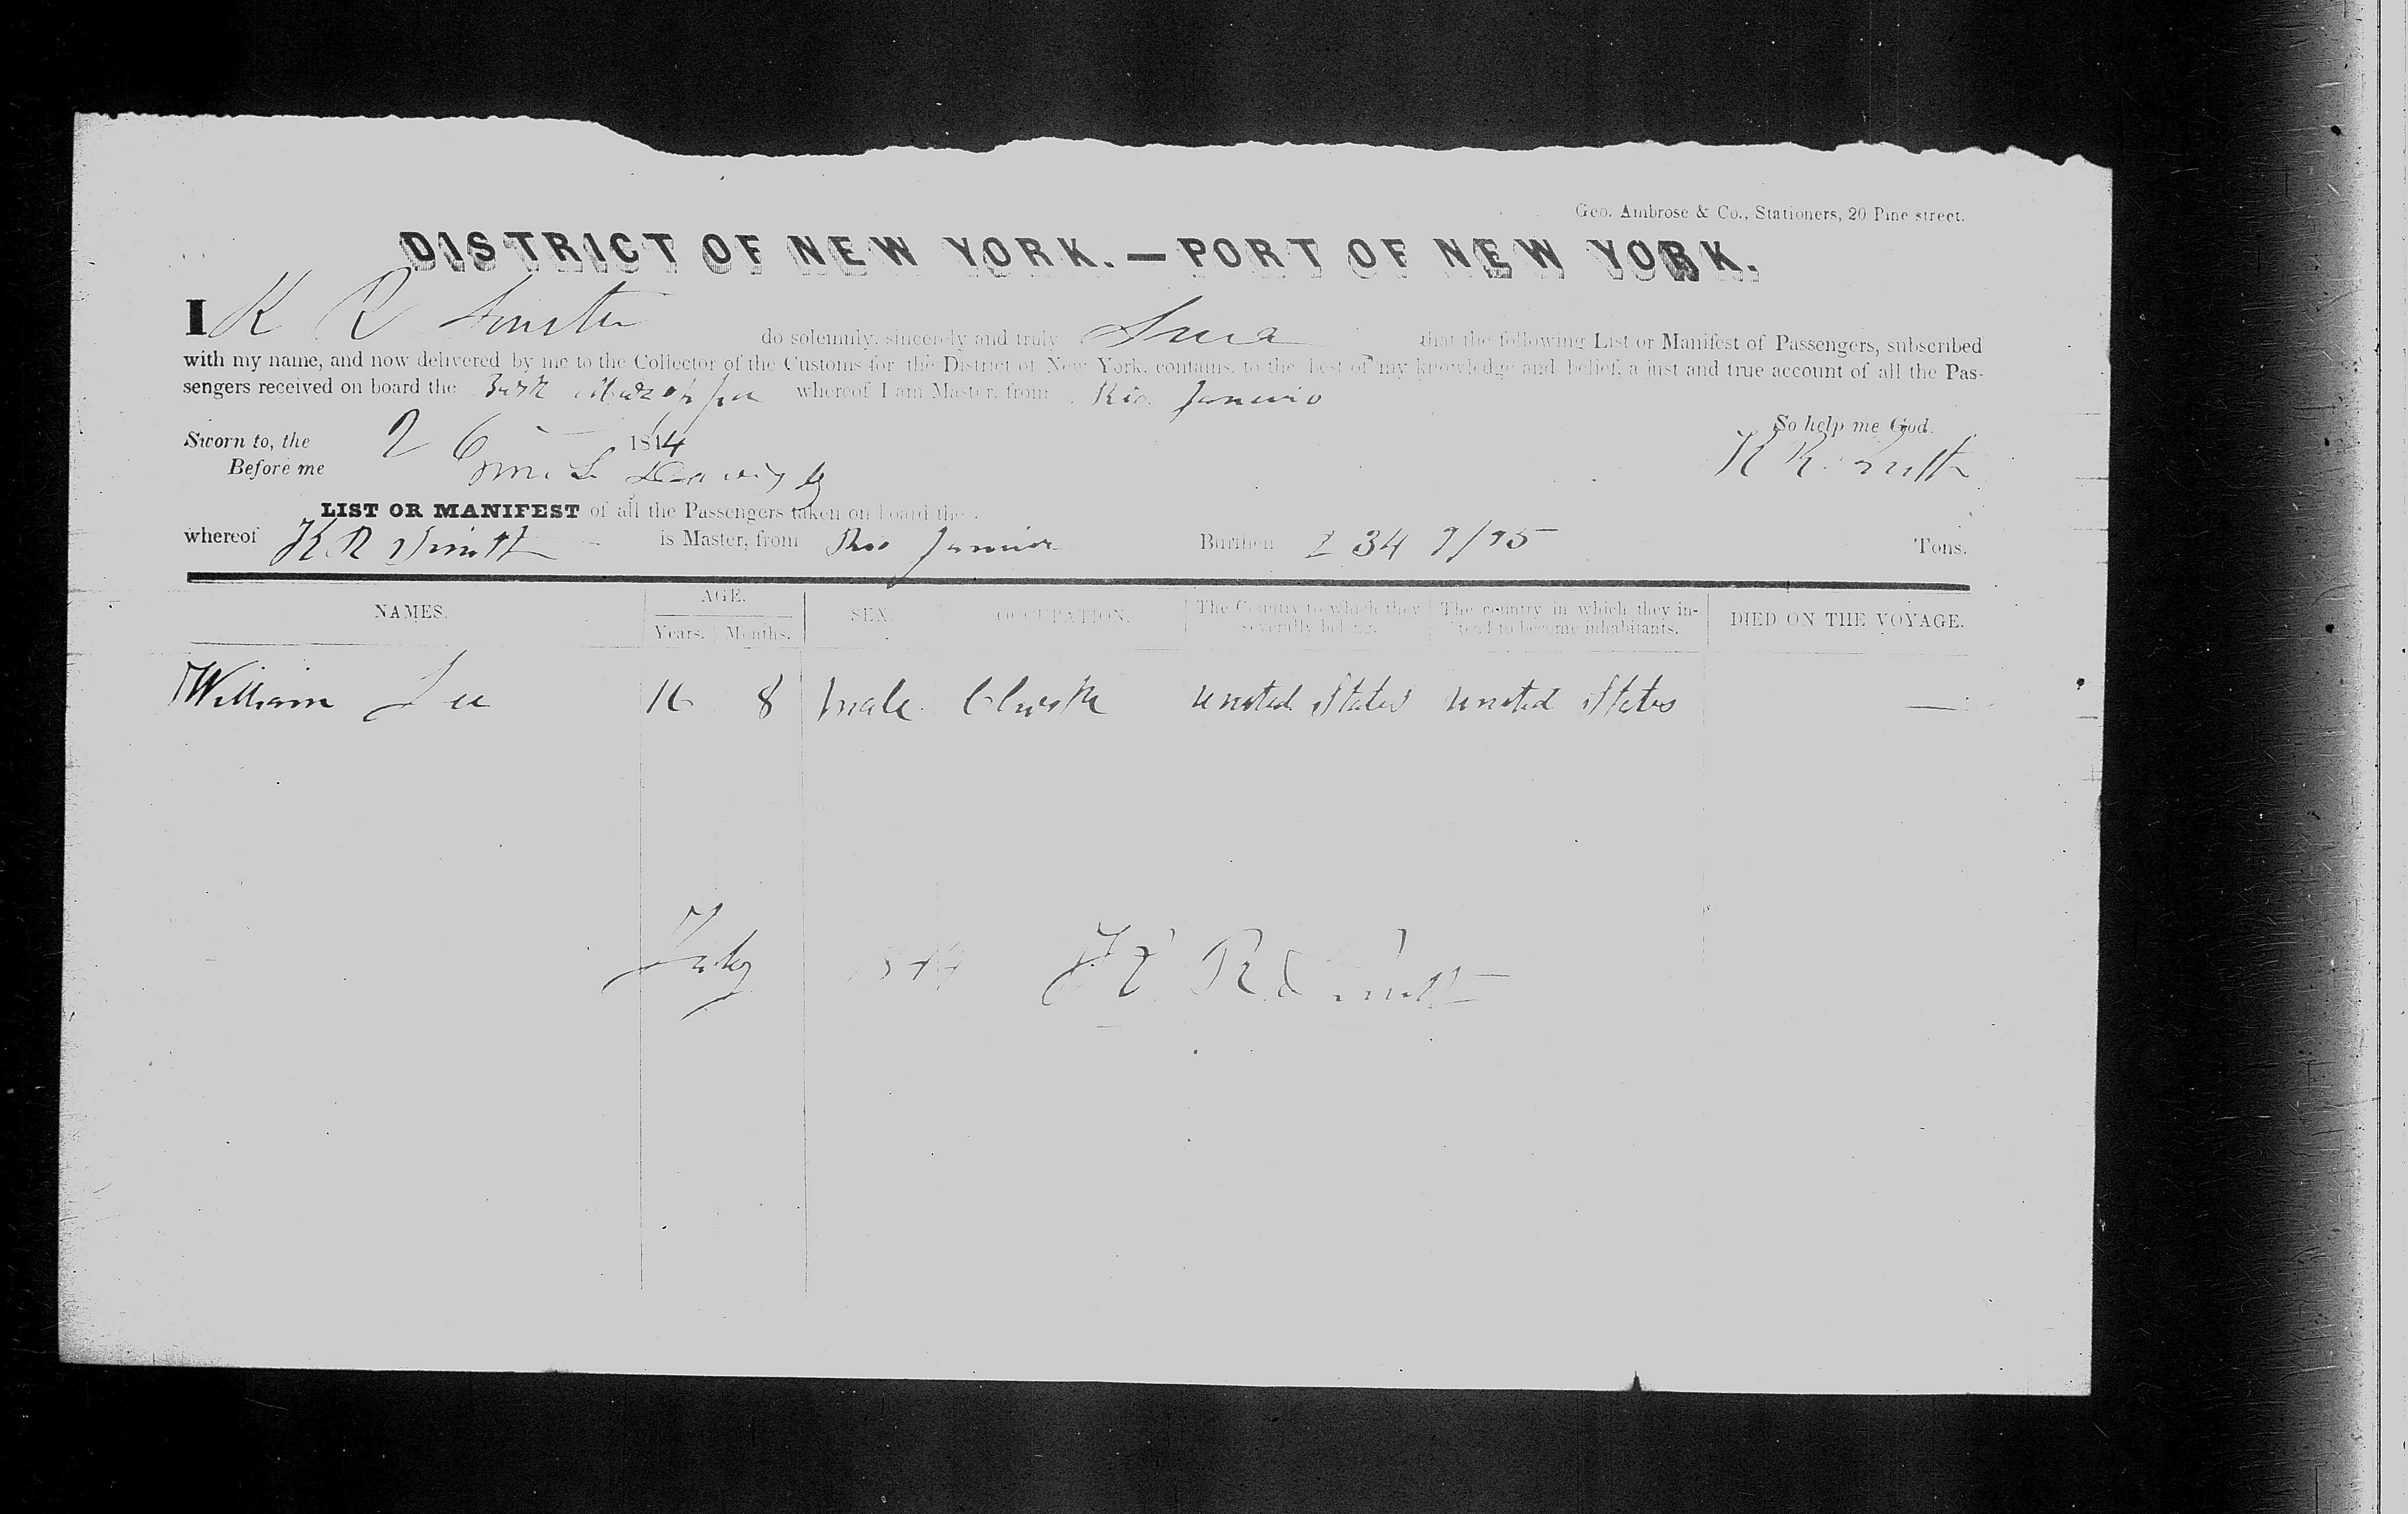 Geo. Ambrose & Co., Stationers, 20 Pine street.
DISTRICT OF NEW YORK.—PORT OF NEW YORK.
I K R Smith do solemnly, sincerely and truly that the following List or Manifest of Passengers, subscribed
with my name, and now delivered by me to the Collector of the Customs for the District of New York, contains, to the best of my knowledge and belief, a just and true account of all the Pas-
sengers received on board the whereof I am Master, from Rio Janeirio
So help me God.
Sworn to, the 26 184
K R Smith
Before me
LIST OR MANIFEST of all the Passengers taken on board the
whereof K R Smith is Master, from Rio Burthen 234 9/95 Tons.
NAMES. AGE. SEX. OCCUPATION. The Country to which they The country in which they in- DIED ON THE VOYAGE.
Years. Months. severally belong. tend to become inhabitants.
William Lee 16 8 male united States united States —
K R Smith